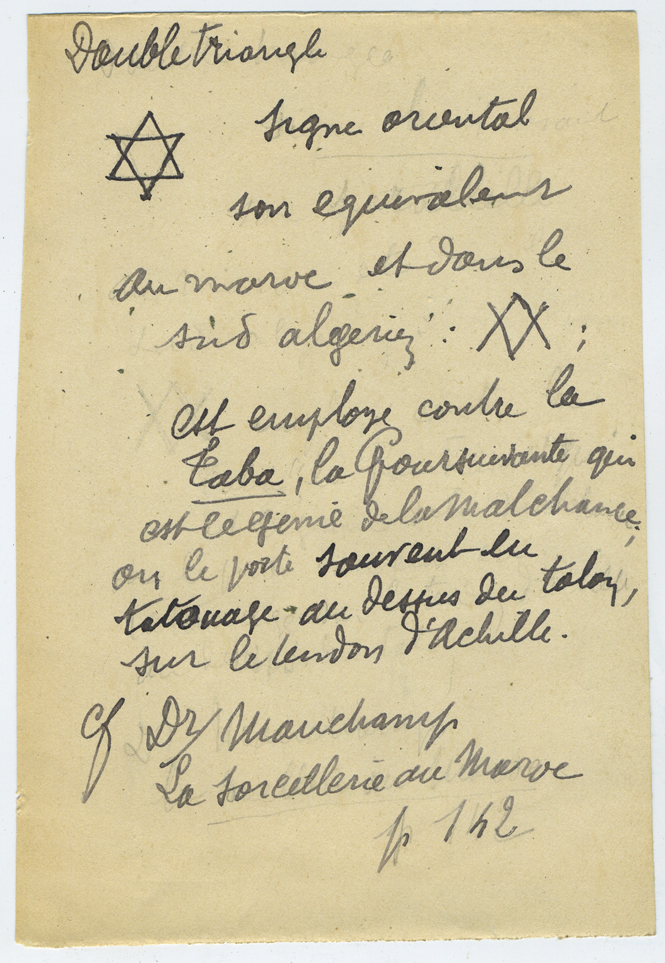 Double triangle
signe oriental
son equivalent
au maroc et dans le
sud algerien : ;
est employe contre la
Taba, la Poursuivante qui
est le genie de la Malchance;
on le porte souvent en
tatouage au dessus du talon,
sur le tendon d'Achille.
cf Dr Mauchamp
La sorcellerie au Maroc
p 142